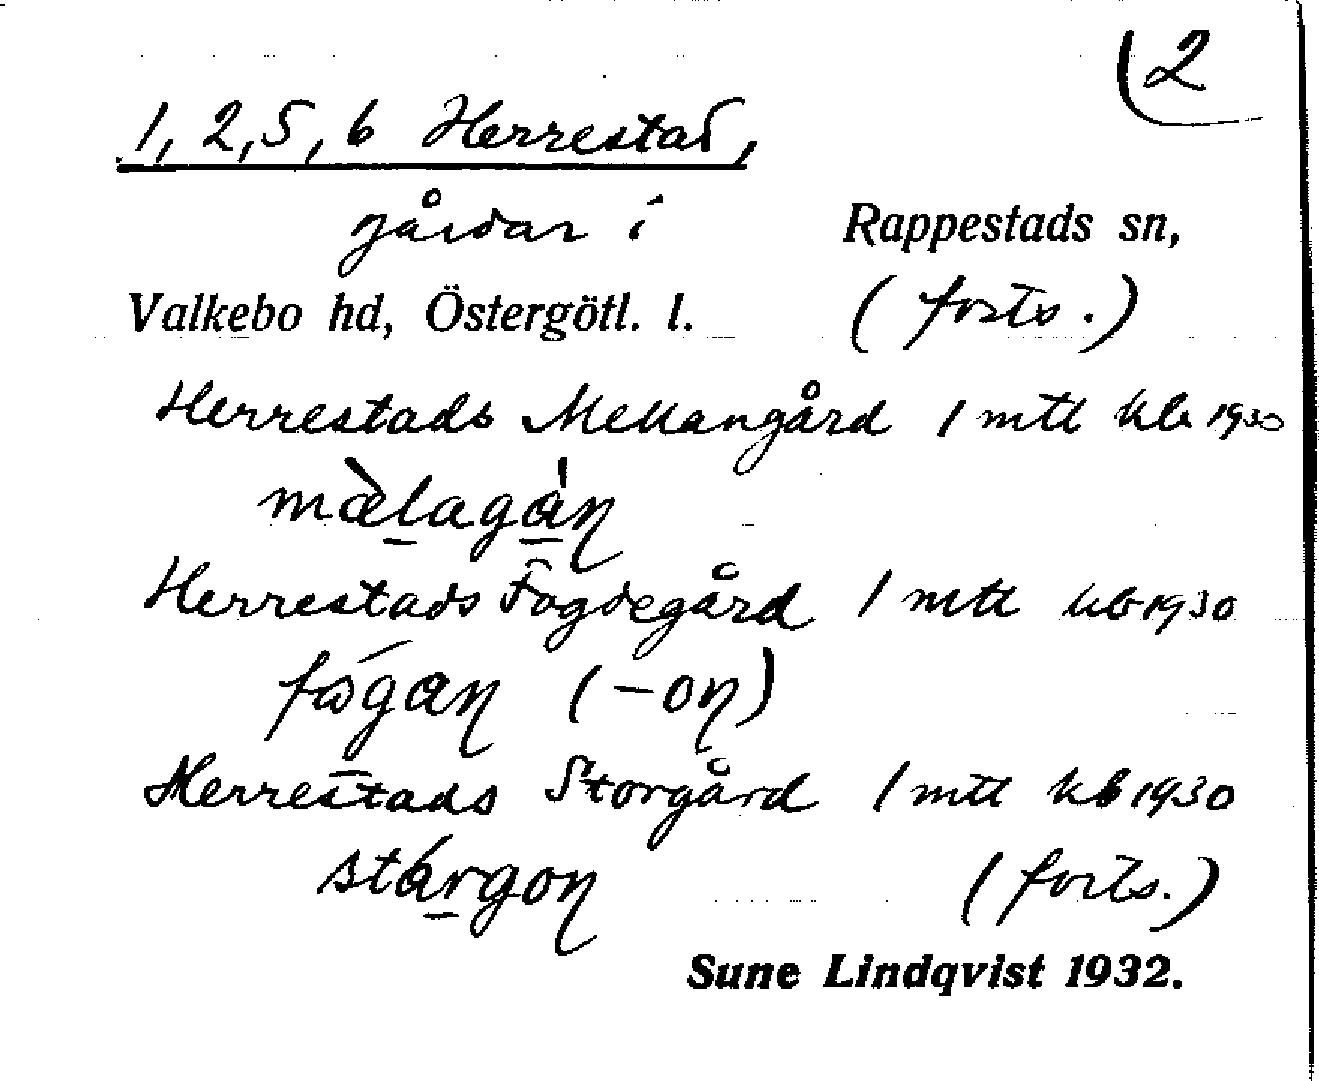 2
1, 2, 5, 6 Herrestad,
gårdar i Rappestads sn,
Valkebo hd, Östergötl. l. (forts.)
Herrestads Mellangård 1 mtl kb 1930
mæ̀lagán
Herrestads Fogdegård 1 mtl kb 1930
(-on)
Herrestads Storgård 1 mtl kb 1930
stárgon (forts.)
Sune Lindqvist 1932.